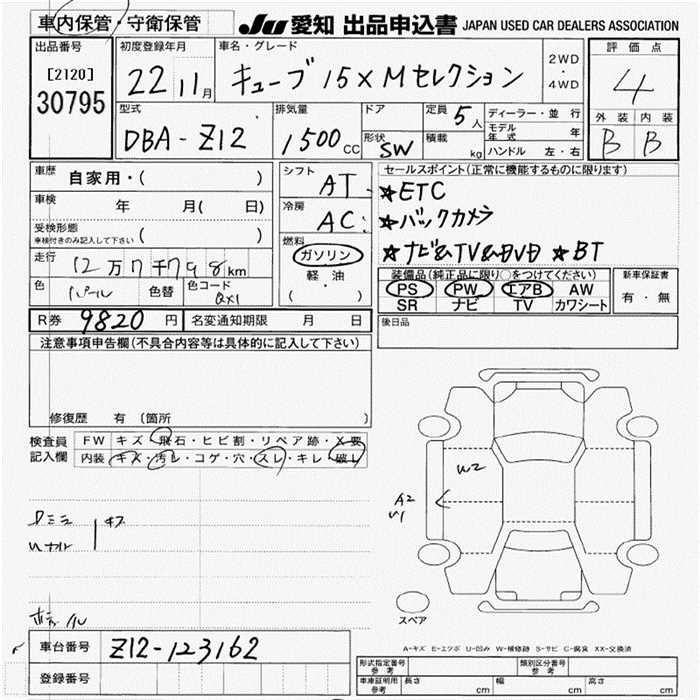 車内保管・守衛保管
JU 愛知 出品申込書 JAPAN USED CAR DEALERS ASSOCIATION
出品番号
[2120]
30795
初度登録年月
22 11月
車名・グレード
キューブ 15×Mセレクション
2WD
・
4WD
評価点
4
外装 内装
B B
型式
DBA-Z12
排気量
1500cc
ドア
形状 SW
定員 5人
積載 kg
ディーラー・並行
モデル年式 年
ハンドル 左・右
車歴 自家用・( )
車検 年 月( 日)
受検形態
車検付きのみ記入して下さい ( )
走行 12万7千798km
色 パール 色替 色コード QX1
シフト AT
冷房 AC
燃料
ガソリン
軽油
( )
セールスポイント(正常に機能するものに限ります)
★ETC
★バックカメラ
★ナビ&TV&DVD ★BT
装備品(純正品に限り○をつけてください)
PS PW エアB AW
SR ナビ TV カワシート
新車保証書
有・無
R券 9820円 名変通知期限 月 日
後日品
注意事項申告欄(不具合内容等は具体的に記入して下さい)
修復歴 有 (箇所 )
検査員記入欄
FW キズ・飛石・ヒビ割・リペア跡・X要
内装 キズ・汚レ・コゲ・穴・スレ・キレ・破レ
W2
A2
U1
Dミラ
キズ
スペア
A-キズ E-エクボ U-凹み W-補修跡 S-サビ C-腐食 XX-交換済
車台番号 Z12-123162
登録番号
形式指定番号 参考
類別区分番号 参考
車庫証明用 参考 長さ cm 幅 cm 高さ cm